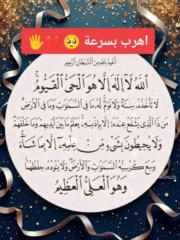 اهرب بسرعة 🥺❤️🖐️
أعوذ بالله من الشيطان الرجيم
ٱللَّهُ لَآ إِلَٰهَ إِلَّا هُوَ ٱلْحَىُّ ٱلْقَيُّومُ
لَا تَأْخُذُهُ سِنَةٌ وَلَا نَوْمٌ لَّهُ مَا فِى ٱلسَّمَٰوَٰتِ وَمَا فِى ٱلْأَرْضِ
مَن ذَا ٱلَّذِى يَشْفَعُ عِندَهُ إِلَّا بِإِذْنِهِ يَعْلَمُ مَا بَيْنَ أَيْدِيهِمْ وَمَا خَلْفَهُمْ
وَلَا يُحِيطُونَ بِشَىْءٍ مِّنْ عِلْمِهِ إِلَّا بِمَا شَآءَ
وَسِعَ كُرْسِيُّهُ ٱلسَّمَٰوَٰتِ وَٱلْأَرْضَ وَلَا يَـُٔودُهُ حِفْظُهُمَا
وَهُوَ ٱلْعَلِىُّ ٱلْعَظِيمُ